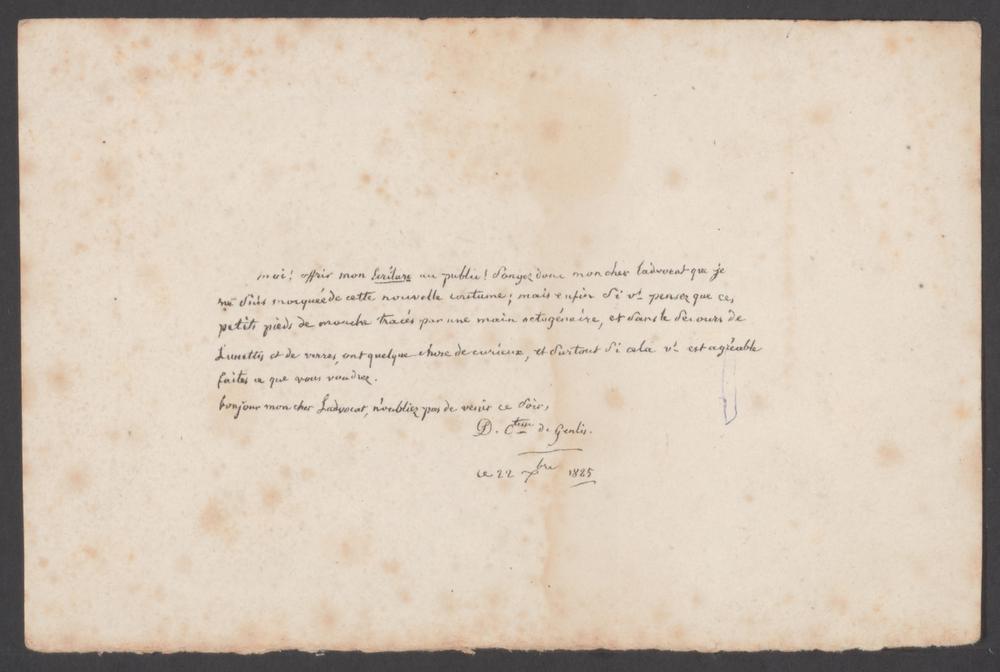 moi! offrir mon Ecriture au public! Songez donc mon cher ladvocat que je
me suis moquée de cette nouvelle coutume; mais enfin Si vs pensez que ces
petits pieds de mouche tracés par une main octogénaire, et Sans le Secours de
Lunettes et de verres, ont quelque chose de curieux, et Surtout Si cela vs est agréable
faites ce que vous voudrez.
bonjour mon cher Ladvocat, n'oubliez pas de venir ce Soir,
D. Ctesse de Genlis.
ce 22 Xbre 1825